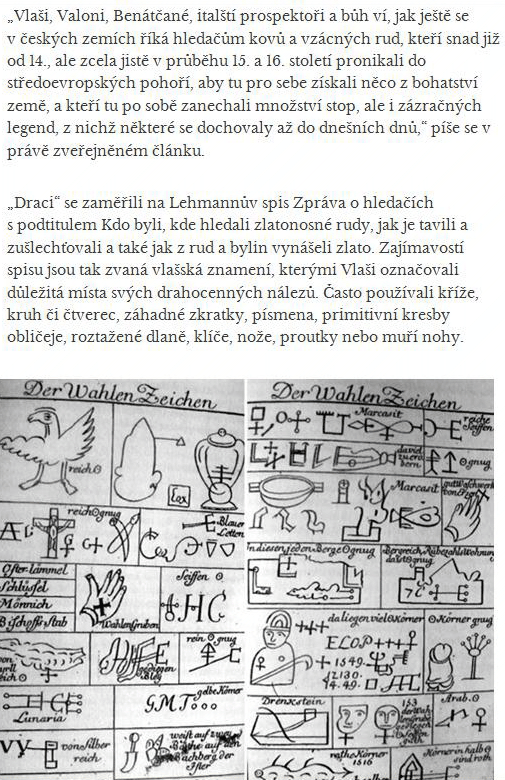 „Vlaši, Valoni, Benátčané, italští prospektoři a bůh ví, jak ještě se
v českých zemích říká hledačům kovů a vzácných rud, kteří snad již
od 14., ale zcela jistě v průběhu 15. a 16. století pronikali do
středoevropských pohoří, aby tu pro sebe získali něco z bohatství
země, a kteří tu po sobě zanechali množství stop, ale i zázračných
legend, z nichž některé se dochovaly až do dnešních dnů,“ píše se v
právě zveřejněném článku.
„Draci“ se zaměřili na Lehmannův spis Zpráva o hledačích
s podtitulem Kdo byli, kde hledali zlatonosné rudy, jak je tavili a
zušlechťovali a také jak z rud a bylin vynášeli zlato. Zajímavostí
spisu jsou tak zvaná vlašská znamení, kterými Vlaši označovali
důležitá místa svých drahocenných nálezů. Často používali kříže,
kruh či čtverec, záhadné zkratky, písmena, primitivní kresby
obličeje, roztažené dlaně, klíče, nože, proutky nebo muří nohy.
Der Wahlen Zeichen
reich
Lax
reich gnug
Blauer
Letten
Oster-lämmel
Schlüssel
Mönnich
Bischoffs-Stab
Wahlen Gruben
Seiffen
HC
rein gnug
gediegen
Bley
Lunaria
GMT
gelbe Körner
VY
von silber
reich
weist auf zwey
Der Wahlen Zeichen
Marcasit
reiche
Seiffen
gnug
Marcasit
In diesen jeden Berge gnug
Bergreich Rübezahls Wohnung
da ist gnug
da liegen viel Körner
Körner gnug
ELOP
1549
Drenkstein
153
Arab.
1516
rothe Körner
Körner in halb
sind roth